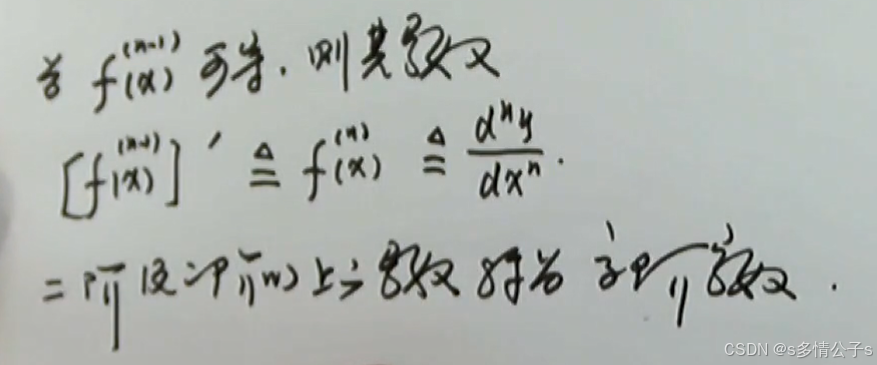 若 f^{(n-1)}(x) 可导，则其导数
[f^{(n-1)}(x)]' ≜ f^{(n)}(x) ≜ \frac{d^n y}{dx^n}.
二阶及二阶以上之导数称为高阶导数.
CSDN @s多情公子s